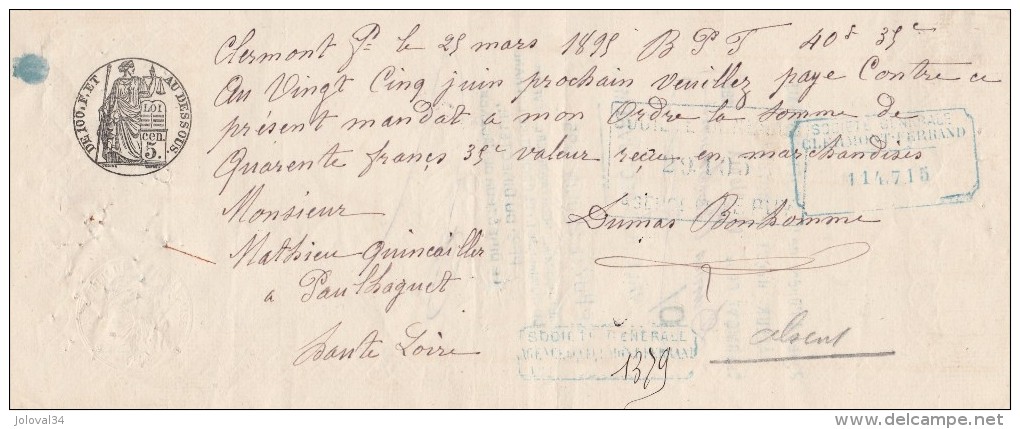 Clermont Fd le 25 mars 1895 B P F 40 f 35 c
Au Vingt Cinq juin prochain veuillez paye Contre ce
présent mandat a mon Ordre la somme de
Quarente francs 35 c valeur reçue en marchandises
Monsieur Dumas Bonhomme
Mathieu Quincailler
a Paulhaguet
Haute Loire
absent
1379
DE 100.F. ET AU DESSOUS.
LOI
5 cen.
SOCIÉTÉ GÉNÉRALE
CLERMONT-FERRAND
114.715
SOCIÉTÉ GÉNÉRALE
29105
AGENCE
SOCIÉTÉ GÉNÉRALE
AGENCE DE CLERMONT-FERRAND
joloval34
www.delcampe.net